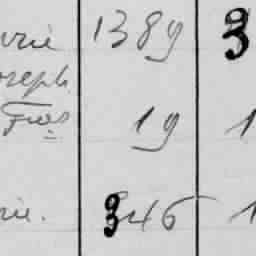 vrie 1389 3
oseph
Frois 19 1
rie. 346 1